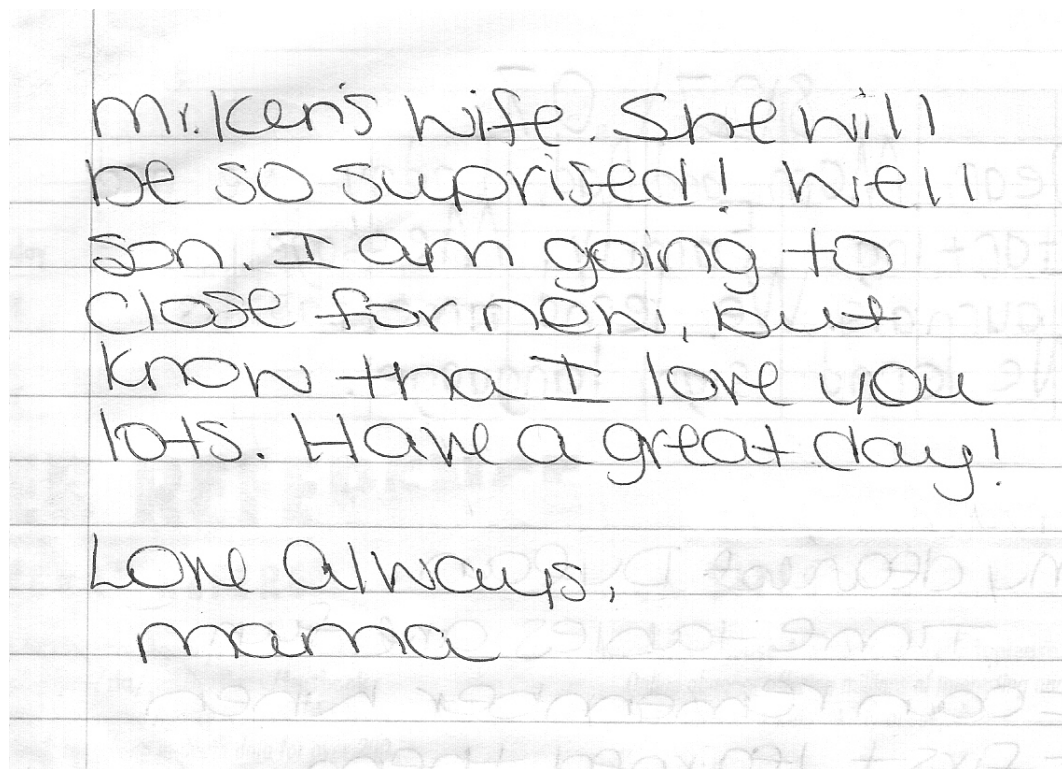 Mr. Ken's wife. She will
be so suprised! Well
son, I am going to
close for now, but
know tha I love you
lots. Have a great day!
Love always,
mama